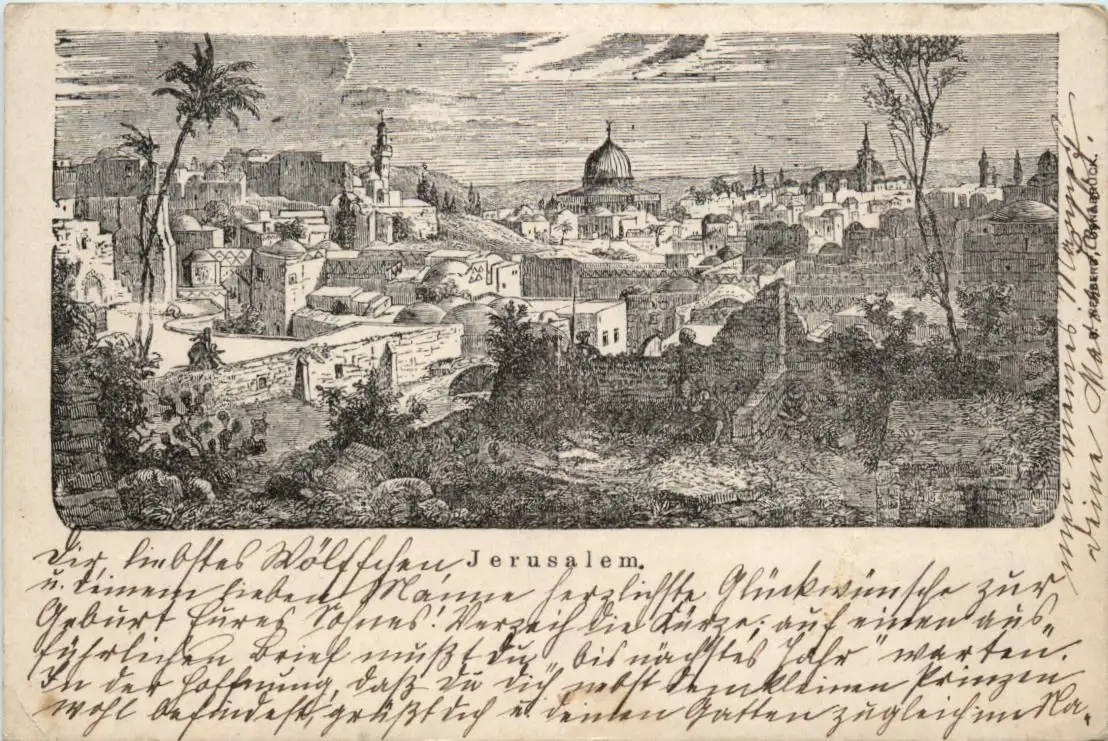 Jerusalem.
Dir, liebstes Wölffchen
u. deinem lieben Manne herzlichste Glückwünsche zur
Geburt Eures Sohnes! Verzeih die Kürze; auf einen aus-
führlichen Brief mußt du „bis nächstes Jahr" warten.
In der Hoffnung, daß du dich nebst dem kleinen Prinzen
wohl befindest, grüßt dich u. deinen Gatten zugleich im Na-
deine